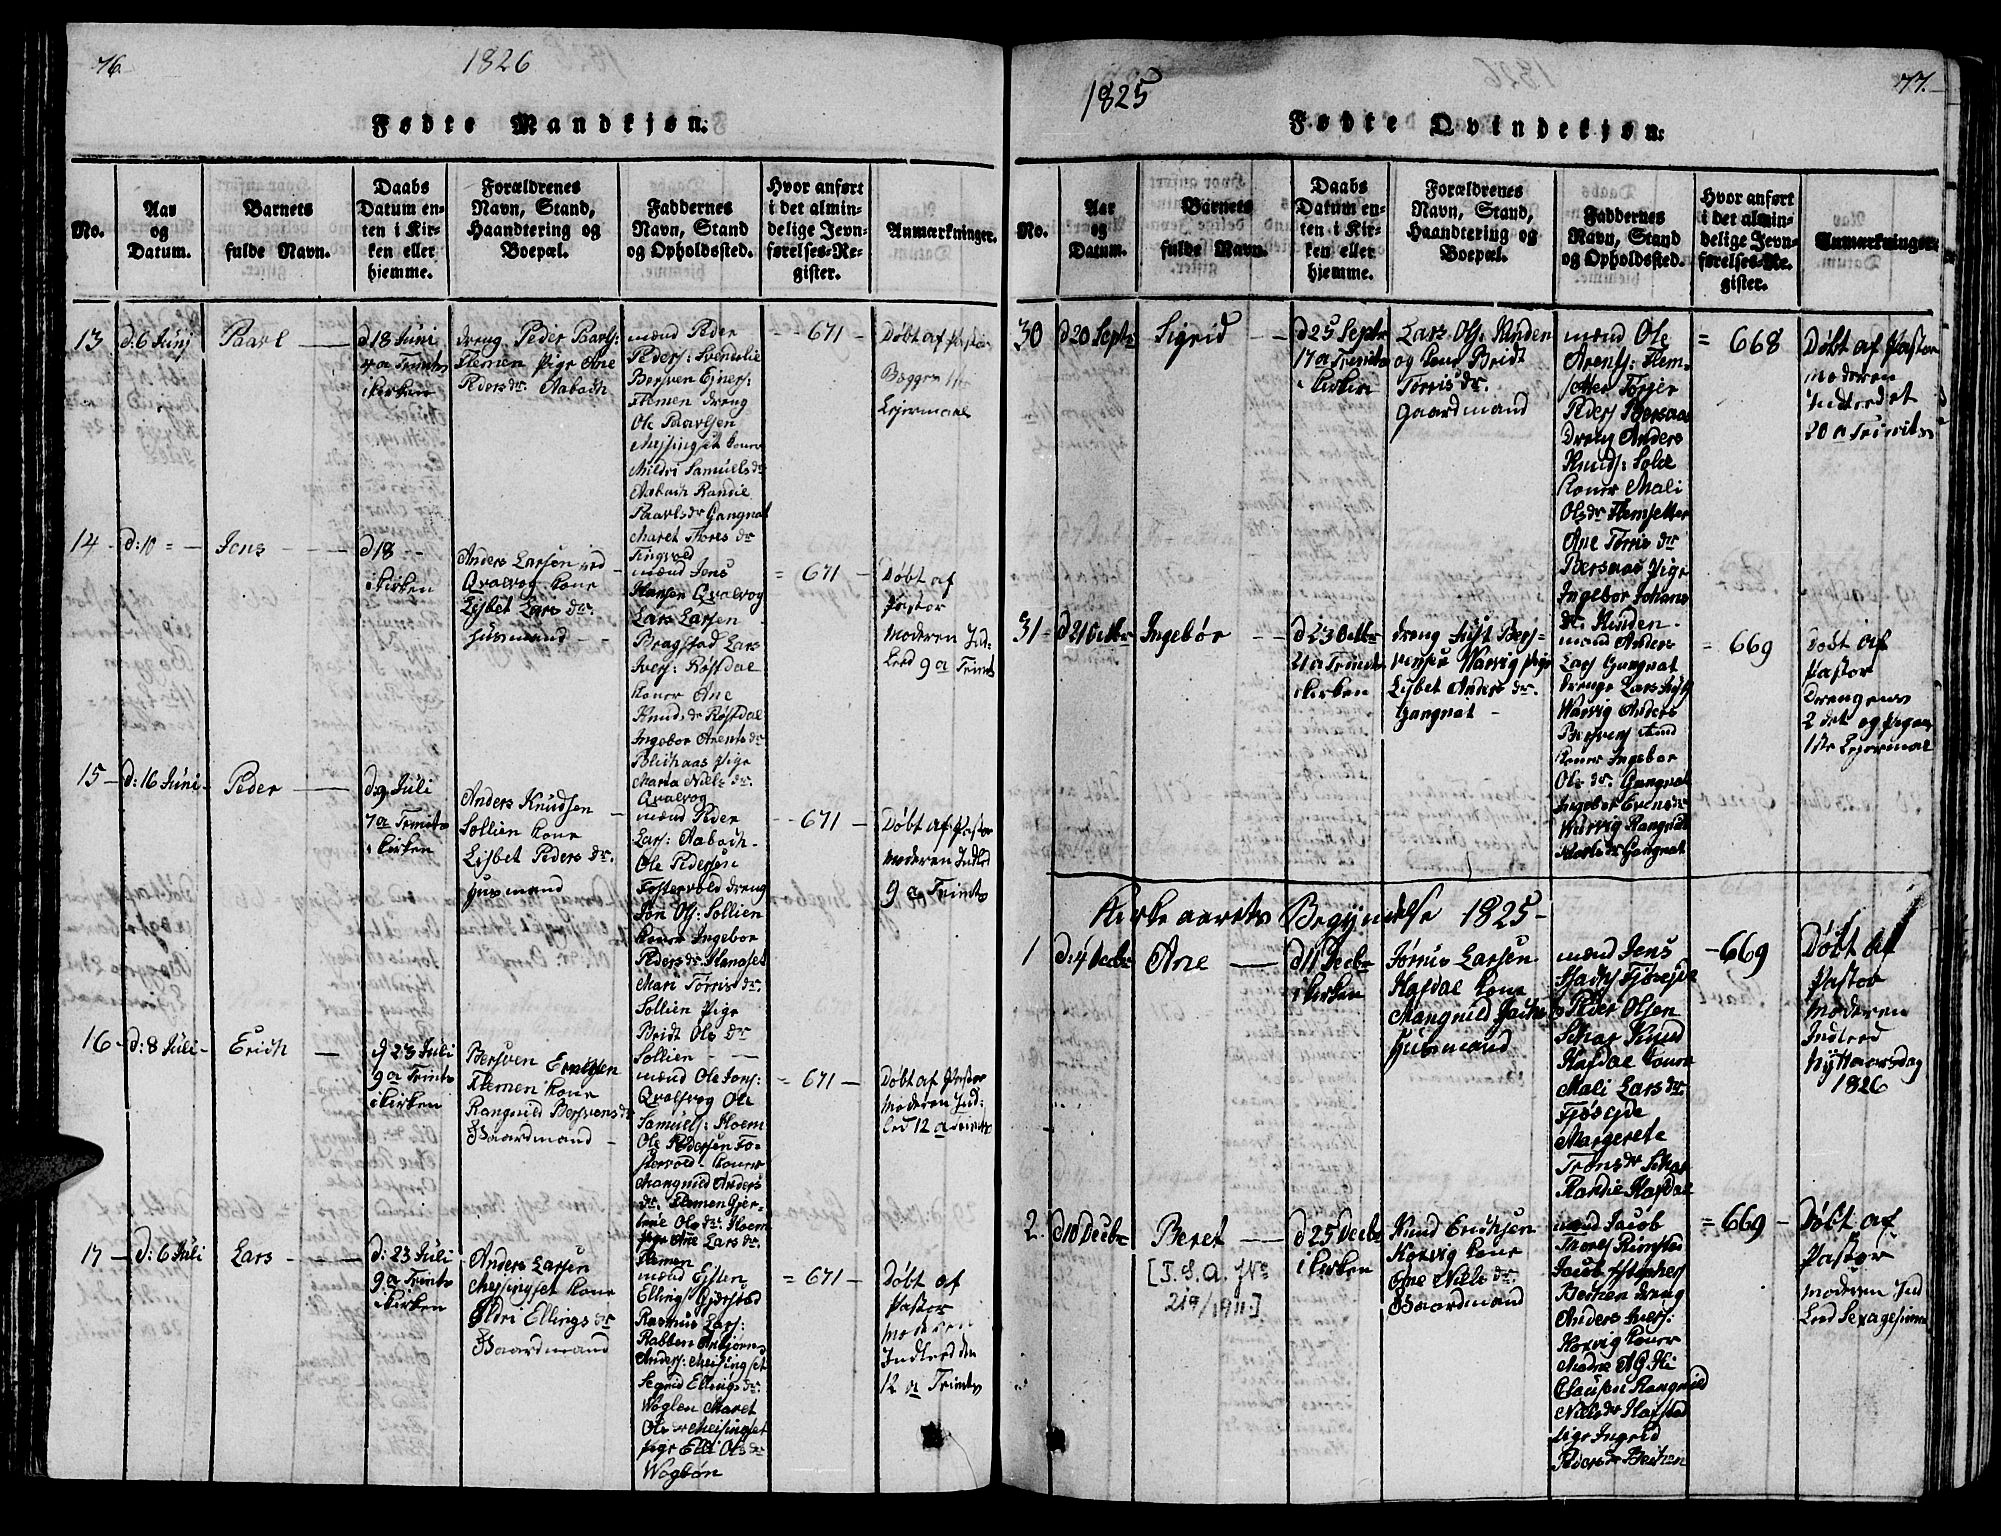 76.
1826
Fødte Mandkjøn:
No.
Aar
og
Datum.
Barnets
fulde Navn.
Daabs
Datum en-
ten i Kir-
ken eller
hjemme.
Forældrenes
Navn, Stand,
Haandtering og
Boepæl.
Faddernes
Navn, Stand
og Opholdssted.
Hvor anført
i det almin-
delige Jevn-
førelses-Re-
gister.
Anmærkninger.
13
d: 6 Junj
Paavl
d 18 Juni
4 a Trinits
i kirken
dreng Peder Paavls:
Flemen Pige Ane
Peders dr. Aabach
mænd Peder
Peders:
Bersven Ejners:
Flemen dreng
Ole Paavlsen
Messingset koner
Mildri Samuels dr
Aabach Randie
Paavls dr Gangnat
Maret Tores dr
Tingvold
671
Døbt af Pastor
Lejermaal
14
d: 10
Jens
d 18
i kirken
Anders Larsen ved
Qvalvog kone
Lisbet Lars dr.
Huusmand
mænd Jens
Hansen Qvalvog
Lars Larsen
Bragstad Lars
Ivers: Røsdal
koner Ane
Knuds dr Røsdal
Ingebor Arents dr
Blichaas pige
Maria Niels dr.
Qvalvog
= 671
Døbt af
Pastor
Moderen Ind-
Leed 9 a Trinits
15
d: 16 Juni
Peder
d 9 Juli
7 a Trinits
i kirken
Anders Knudsen
Sollien kone
Lisbet Peders dr.
Huusmand
mænd Peder
Lars: Aabach
Ole Pedersen
Fostervold dreng
Jon Ols: Sollien
koner Ingebor
Peders dr. Hangset
Mari Torris dr.
Sollien Pige
Bridt Ols dr
Sollien
671
Døbt af Pastor
Moderen Indled
9 a Trinits
16
d: 8 Juli
Erich
d 23 Juli
9 a Trinits
i kirken
Bersven
Flemen kone
Rangnild Bersvens dr
Gaardmand
mænd Ole Jons:
Qvalvog Ole
Samuels: Hoem
Ole Pedersen Fo-
stervold koner
Mangnild Anders
dr. Flemen Gjer-
true Ols dr. Hoem
pige Ane Lars dr.
Flemen
= 671
Døbt af Pastor
Moderen Ind-
led 12 a Trinits
17
d: 6 Juli
Lars
d: 23 Juli
9 a Trinits
i kirken
Anders Larsen
Messingset kone
Eldri Ellings dr
Gaardmand
mænd
Ellings: Gjørstad
Rasmus Lars:
Rabben
Anders: Meisingset
Segrid Ellings dr.
Woglen Maret
Ols dr Meisingset
pige Elli Ols dr
Wogbøn
= 671
Døbt af
Pastor
Moderen
Indled den
12 a Trinits
1825
77.
Fødte Qvindekjøn:
No.
Aar
og
Datum.
Barnets
fulde Navn.
Daabs
Datum en-
ten i Kir-
ken eller
hjemme.
Forældrenes
Navn, Stand,
Haandtering og
Boepæl.
Faddernes
Navn, Stand
og Opholdssted.
Hvor anført
i det almin-
delige Jevn-
førelses-Re-
gister.
Anmærkninger.
30
d 20 Septr
Sigrid
d 25 Septr
17 a Trinits
i kirken
Lars Ols:
og kone Bridt
Torris dr.
Gaardmand
mænd Ole
Arents: Flem-
sætter Torger
Peders
dreng Anders
Knuds: Solie
koner Mali
Ols dr Flemsetter
Ane Torris dr
pige
Ingebor Johans
dr.
= 668
Døbt af Pastor
Moderen
Indledet
20 a Trinits
31
d 21 Octbr
Ingebør
d 23 Octbr
21 a Trinits
i kirken
dreng Just Bers-
vensen Warvig pige
Lisbet Anders dr.
Gangnat
mænd Anders
Lars Gangnat
drenge Lars
Warvig Anders
koner Ingebor
Ols dr. Gangnat
Ingebor Evens dr
Warvig Rangnil
Gangnat
= 669
Døbt af
Pastor
Drengens
2det og pigens
1ste Lejermaal
Kirke aarets Begyndelse 1825
1
d: 4 Decbr
Ane
d 11 Decbr
i kirken
Larsen
Hafdal kone
Mangnild
Huusmand
mænd Jens
Peder Olsen
Knud
Hafdal koner
Mali Lars dr.
Margerete
Trøns dr
Randie Hafdal
669
Døbt af
Pastor
Moderen
Indleed
Nyttaarsdag
1826
2.
d 10 Decbr
Beret
[I. S. a. JNo
219/1911.]
d 25 Decbr
i kirken
Knud Erichsen
Korvig kone
Ane Niels dr.
Gaardmand
mænd Jacob
Thores: Rimstad
Jacob
dreng
Anders Ivers:
Korvig koner
Clausen Rangnild
Niels dr Hafstad
pige Ingrid
Peders dr
= 669
Døbt af
Pastor
Moderen Ind
Leed Sexagesima